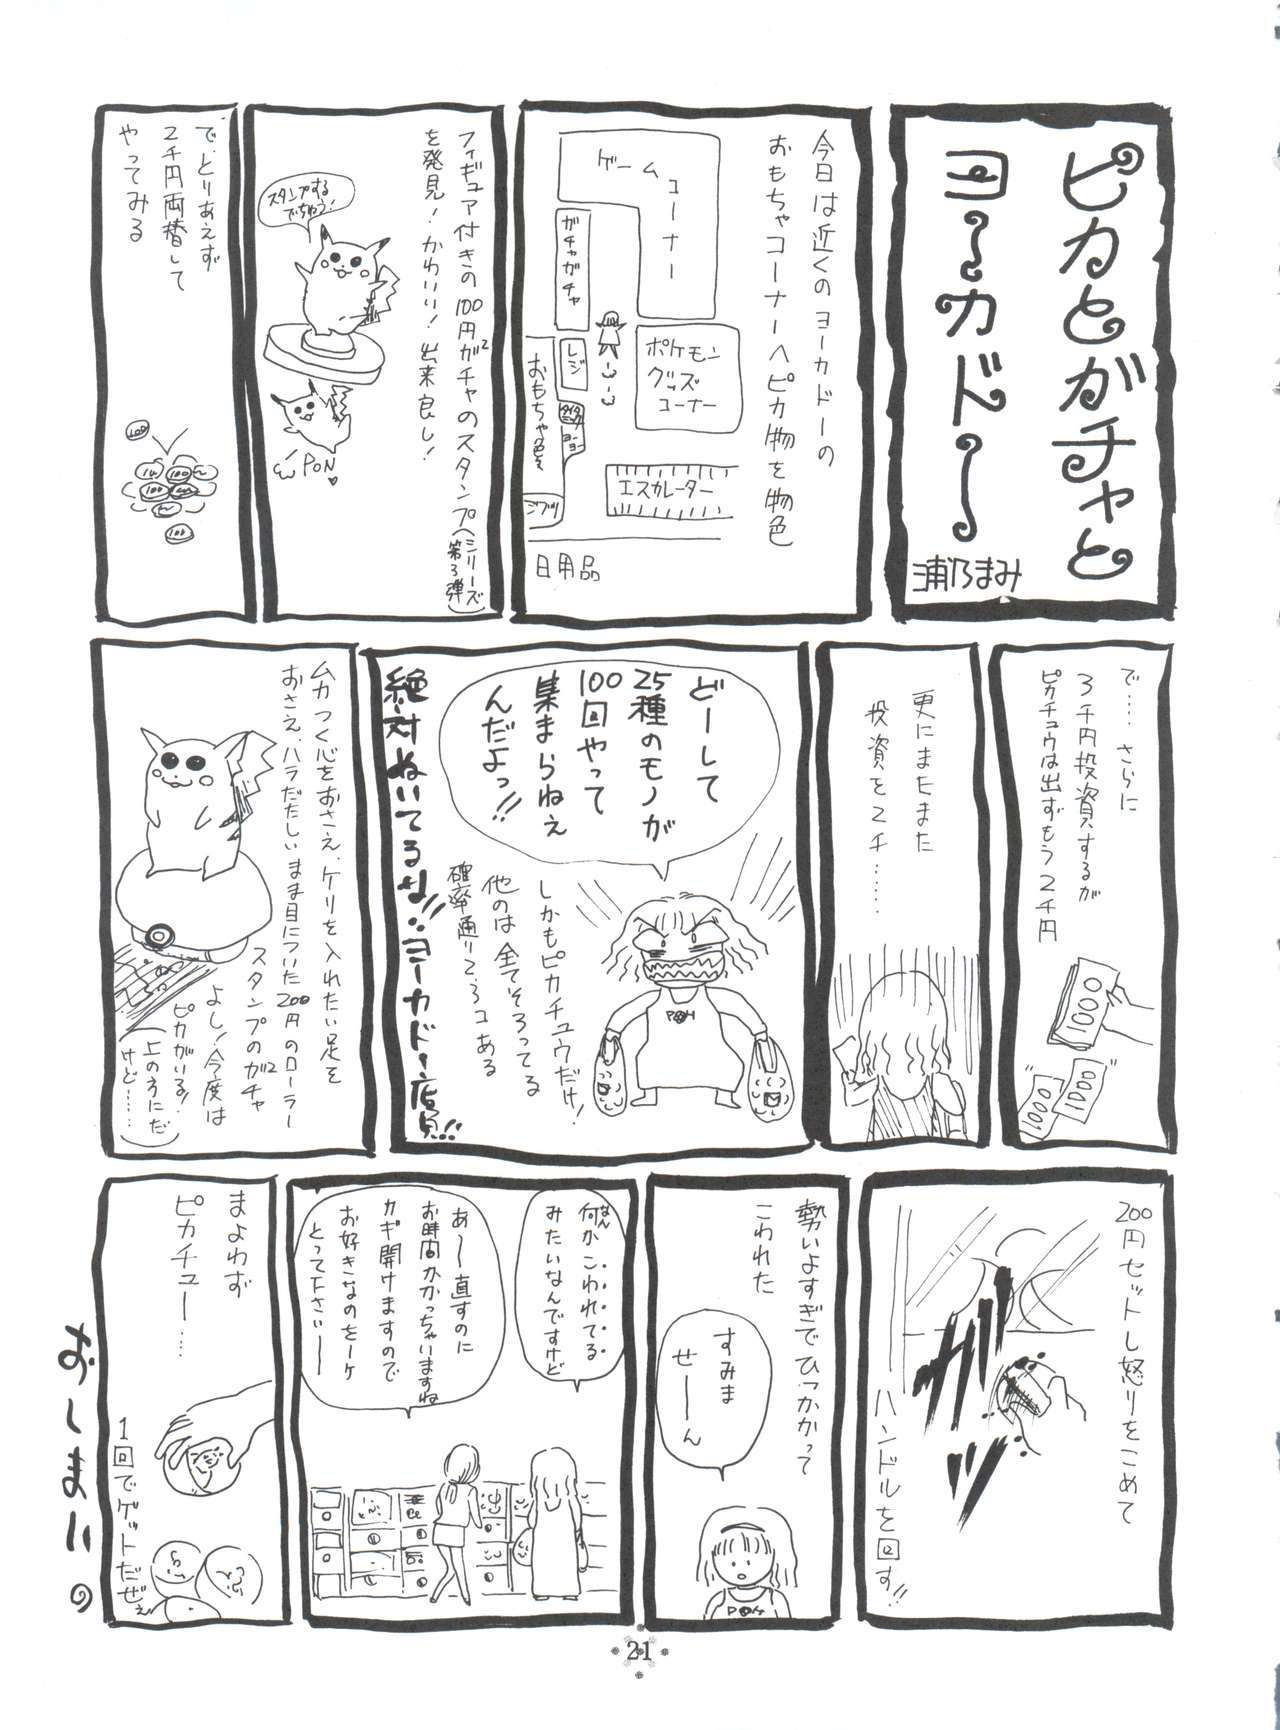 ピカとガチャと
ヨーカドー
浦乃まみ
今日は近くのヨーカドーの
おもちゃコーナーへピカ物を物色
ゲーム
コーナー
ガチャガチャ
レジ
ポケモン
グッズ
コーナー
おもちゃ色々
ヨーヨー
ジブリ
エスカレーター
日用品
フィギュア付きの100円ガチャ2のスタンプ(シリーズ
第3弾)
を発見!かわいい!出来良し!
スタンプする
でちゅう!
PON
で、とりあえず
2千円両替して
やってみる
100
100
100
100
で……さらに
3千円投資するが
ピカチュウは出ずもう2千円
1000
1000
1000
更にまたまた
投資を2千……
どーして
25種のモノが
100回やって
集まらねえ
んだよっ!!
しかもピカチュウだけ!
他のは全てそろってる
確率通り2、3コある
絶対ぬいてるな!!ヨーカドー店員!!
ムカつく心をおさえ、ケリを入れたい足を
おさえ、ハラだたしいまま目についた200円のローラー
スタンプのガチャ2
よし!今度は
ピカがいる!
(上の方にだ
けど……)
200円セットし怒りをこめて
ハンドルを回す!!
ガガッ
勢いよすぎでひっかかって
こわれた
すみま
せーん
何かこわれてる
なん
みたいなんですけど
あー直すのに
お時間かかっちゃいますね
カギ開けますので
お好きなのをーケ
とって下さいー
まよわず
ピカチュー…
1回でゲットだぜぇ
おしまい
21